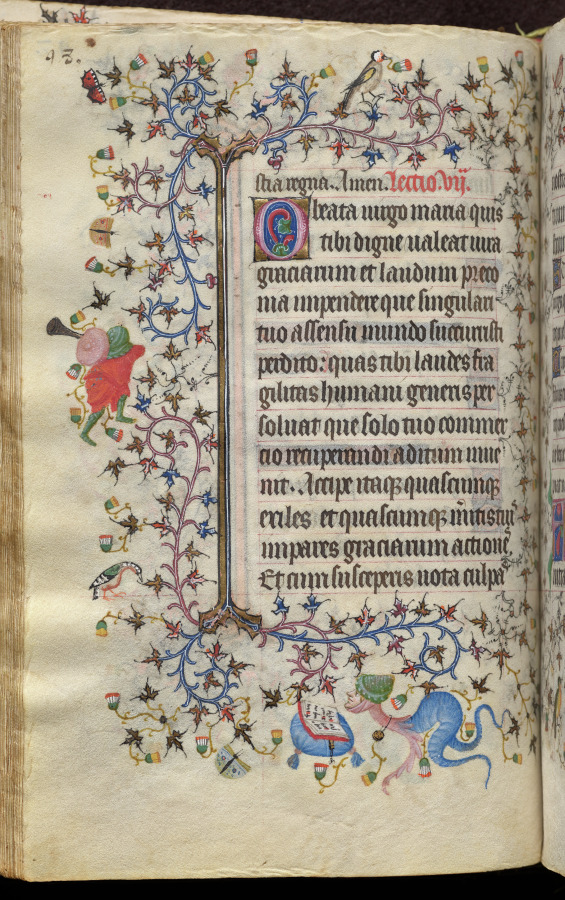 93.
stia regna. Amen. Lectio vij.
O beata uirgo maria quis
tibi digne ualeat iura
graciarum et laudum preco
nia impendere que singulari
tuo assensu mundo succurristi
perdito: quas tibi laudes fra
gilitas humani generis per
soluat que solo tuo commer
cio recuperandi aditum inue
nit. Accipe itaq quascumq
exiles et quascumq
impares graciarum actiones
Et cum susceperis uota culpa